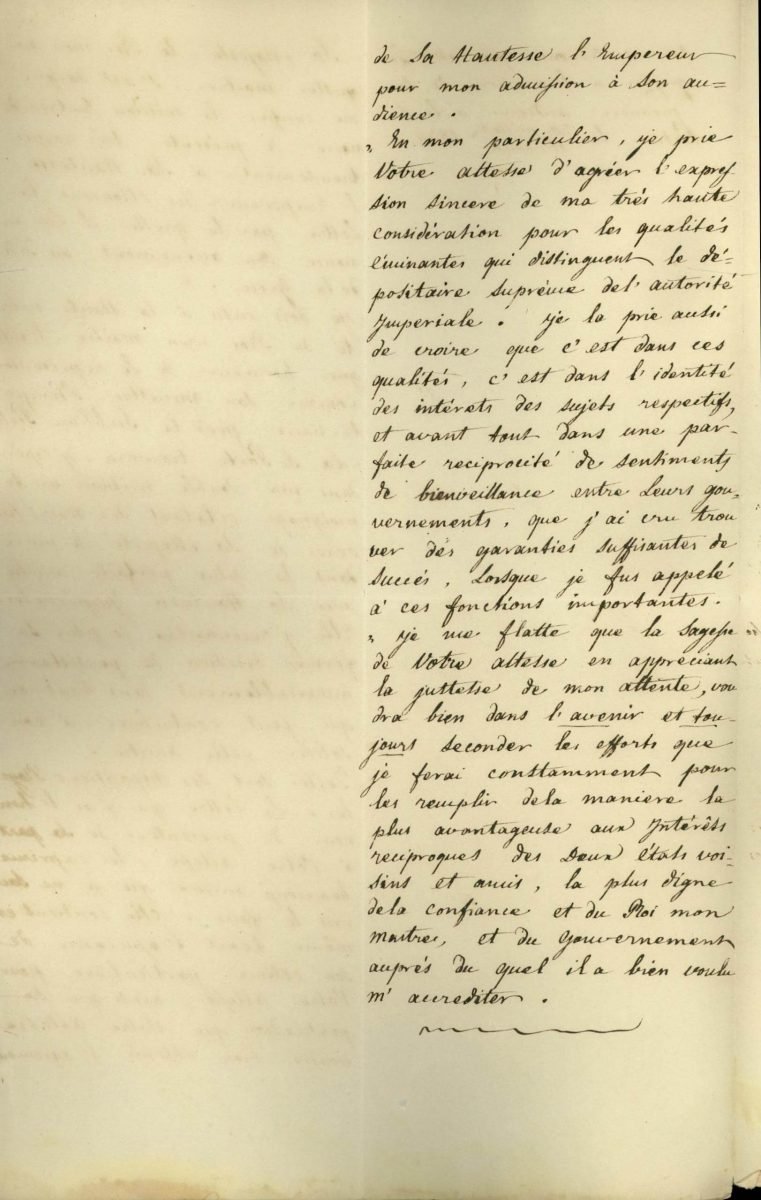 de Sa Hautesse l'Empereur
pour mon admission à Son au=
dience.
„ En mon particulier, je prie
Votre altesse d'agréer l'expres
sion sincere de ma trés haute
considération pour les qualités
éminantes qui distinguent le dé-
positaire suprême del'autorité
Imperiale. Je la prie aussi
de croire que c'est dans ces
qualités, c'est dans l'identité
des intérets des sujets respectifs,
et avant tout dans une par-
faite reciprocité de sentiments
de bienveillance entre Leurs gou-
vernements, que j'ai cru trou
ver des garanties suffisantes de
succés, Lorsque je fus appelé
à ces fonctions importantes.
„ Je me flatte que la Sagesse
de Votre altesse en appréciant
la juttesse de mon attente, vou
dra bien dans l'avenir et tou-
jours seconder les efforts que
je ferai constamment pour
les remplir dela maniere la
plus avantageuse aux Intérêts
reciproques des Deux états voi-
sins et amis, la plus digne
dela confiance et du Roi mon
maitre, et du Gouvernement
auprés du quel il a bien voulu
m'accrediter.